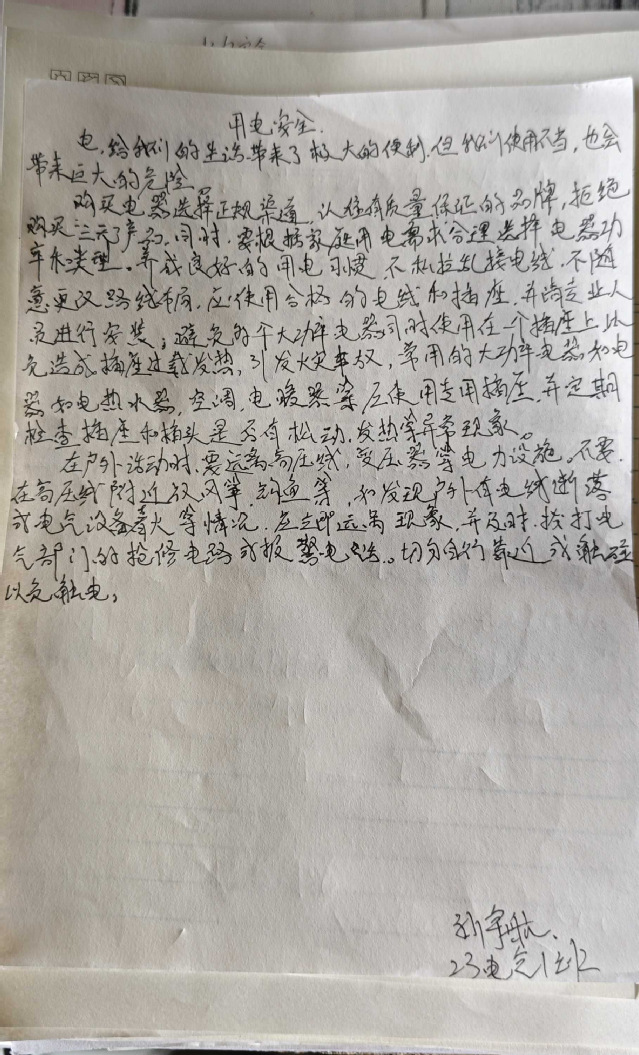 用电安全.
电,给我们的生活带来了极大的便利.但我们使用不当,也会
带来巨大的危险
购买电器选择正规渠道,认准有质量保证的品牌,拒绝
购买三无产品.同时.要根据家庭用电需求合理选择电器功
率和类型.养成良好的用电习惯.不私拉乱接电线.不随
意更改路线布局.应使用合格的电线和插座.并请专业人
员进行安装;避免多个大功率电器同时使用在一个插座上以
免造成插座过载发热,引发火灾事故,常用的大功率电器如电
器如电热水器.空调.电暖器等应使用专用插座.并定期
检查插座和插头是否有松动,发热等异常现象。
在户外活动时.要远离高压线,变压器等电力设施。不要
在高压线附近放风筝.钓鱼等,如发现户外有电线断落
或电气设备着火等情况.应立即远离现象,并及时.拨打电
气部门的抢修电路或报警电话。切勿自行靠近或触碰
以免触电,
孙宇航.
23电气